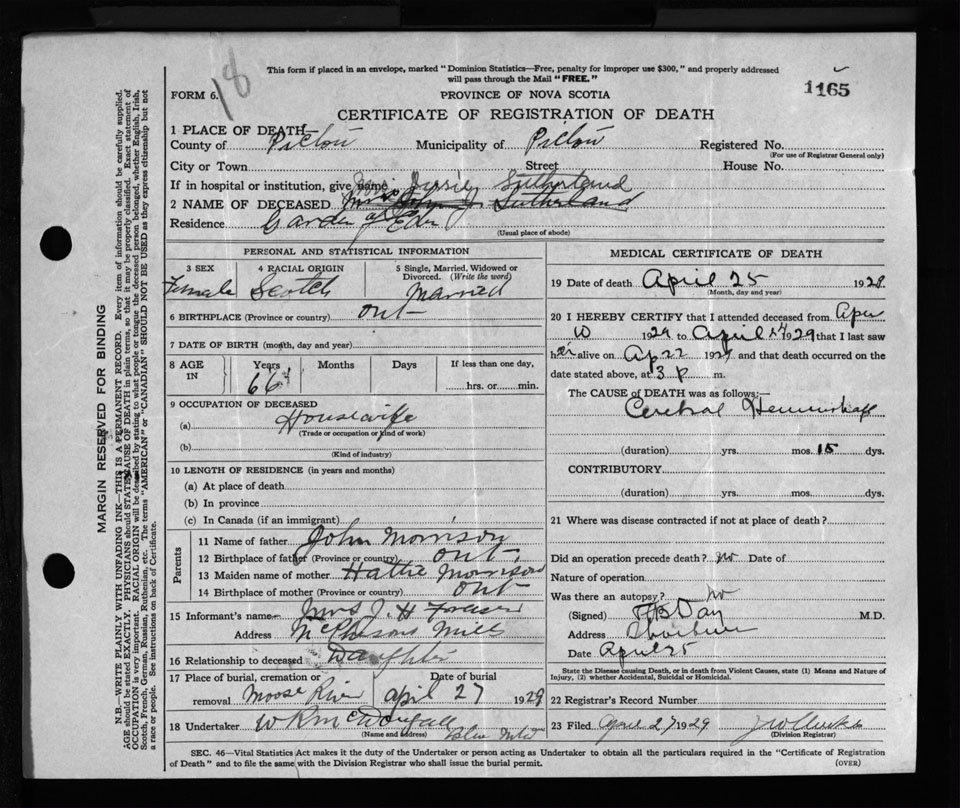 18
This form if placed in an envelope, marked "Dominion Statistics—Free, penalty for improper use $300," and properly addressed
will pass through the Mail "FREE."
1165
FORM 6.
PROVINCE OF NOVA SCOTIA
CERTIFICATE OF REGISTRATION OF DEATH
1 PLACE OF DEATH
County of Pictou Municipality of Pictou Registered No.
(For use of Registrar General only)
City or Town Street House No.
If in hospital or institution, give name
Mrs Jessie Sutherland
2 NAME OF DECEASED Mrs John Sutherland
Residence Garden of Eden
(Usual place of abode)
PERSONAL AND STATISTICAL INFORMATION
3 SEX 4 RACIAL ORIGIN 5 Single, Married, Widowed or
Divorced. (Write the word)
Female Scotch Married
6 BIRTHPLACE (Province or country) out
7 DATE OF BIRTH (month, day and year)
8 AGE IN Years Months Days If less than one day,
66 hrs. or min.
9 OCCUPATION OF DECEASED
(a) Housewife
(Trade or occupation or kind of work)
(b)
(Kind of industry)
10 LENGTH OF RESIDENCE (in years and months)
(a) At place of death
(b) In province
(c) In Canada (if an immigrant)
Parents
11 Name of father John Morrison
12 Birthplace of father (Province or country) out
13 Maiden name of mother Hattie Morrison
14 Birthplace of mother (Province or country) out
15 Informant's name Mrs J. H Fraser
Address McPhersons Mills
16 Relationship to deceased Daughter
17 Place of burial, cremation or Date of burial
removal Moose River April 27 1929
18 Undertaker W R McDougall
(Name and address)
MEDICAL CERTIFICATE OF DEATH
19 Date of death April 25 1929
(Month, day and year)
20 I HEREBY CERTIFY that I attended deceased from
10 1929 to April 24 1929 that I last saw
her alive on Ap 22 1929 and that death occurred on
date stated above, at 3 P m.
The CAUSE of DEATH was as follows:—
Cerebral
(duration) yrs. mos. 15 dys.
CONTRIBUTORY
(duration) yrs. mos. dys.
21 Where was disease contracted if not at place of death?
Did an operation precede death? no Date of
Nature of operation
Was there an autopsy? no
(Signed) Day M.D.
Address
Date April 25
State the Disease causing Death, or in death from Violent Causes, state (1) Means and Nature of
Injury, (2) whether Accidental, Suicidal or Homicidal.
22 Registrar's Record Number
23 Filed April 27 1929
(Division Registrar)
SEC. 46—Vital Statistics Act makes it the duty of the Undertaker or person acting as Undertaker to obtain all the particulars required in the "Certificate of Registration
of Death" and to file the same with the Division Registrar who shall issue the burial permit.
(OVER)
MARGIN RESERVED FOR BINDING
N.B.—WRITE PLAINLY WITH UNFADING INK—THIS IS A PERMANENT RECORD. Every item of information should be carefully supplied.
AGE should be stated EXACTLY. PHYSICIANS should STATE CAUSE OF DEATH in plain terms, so that it may be properly classified. Exact statement of
OCCUPATION is very important. RACIAL ORIGIN will be described by stating to what people or tongue the deceased person belonged, whether English, Irish,
Scotch, French, German, Russian, Ruthenian, etc. The terms "AMERICAN" or "CANADIAN" SHOULD NOT BE USED as they express citizenship but not
a race or people. See instructions on back of Certificate.